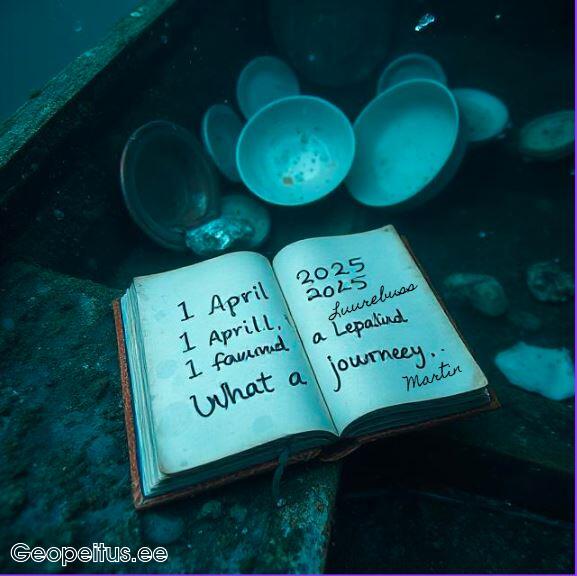 1 April
1 Aprill.
1 faunnd
What a
2025
2025
Luurebuss
a Lepalind
journeey..
Martin
Geopeitus.ee